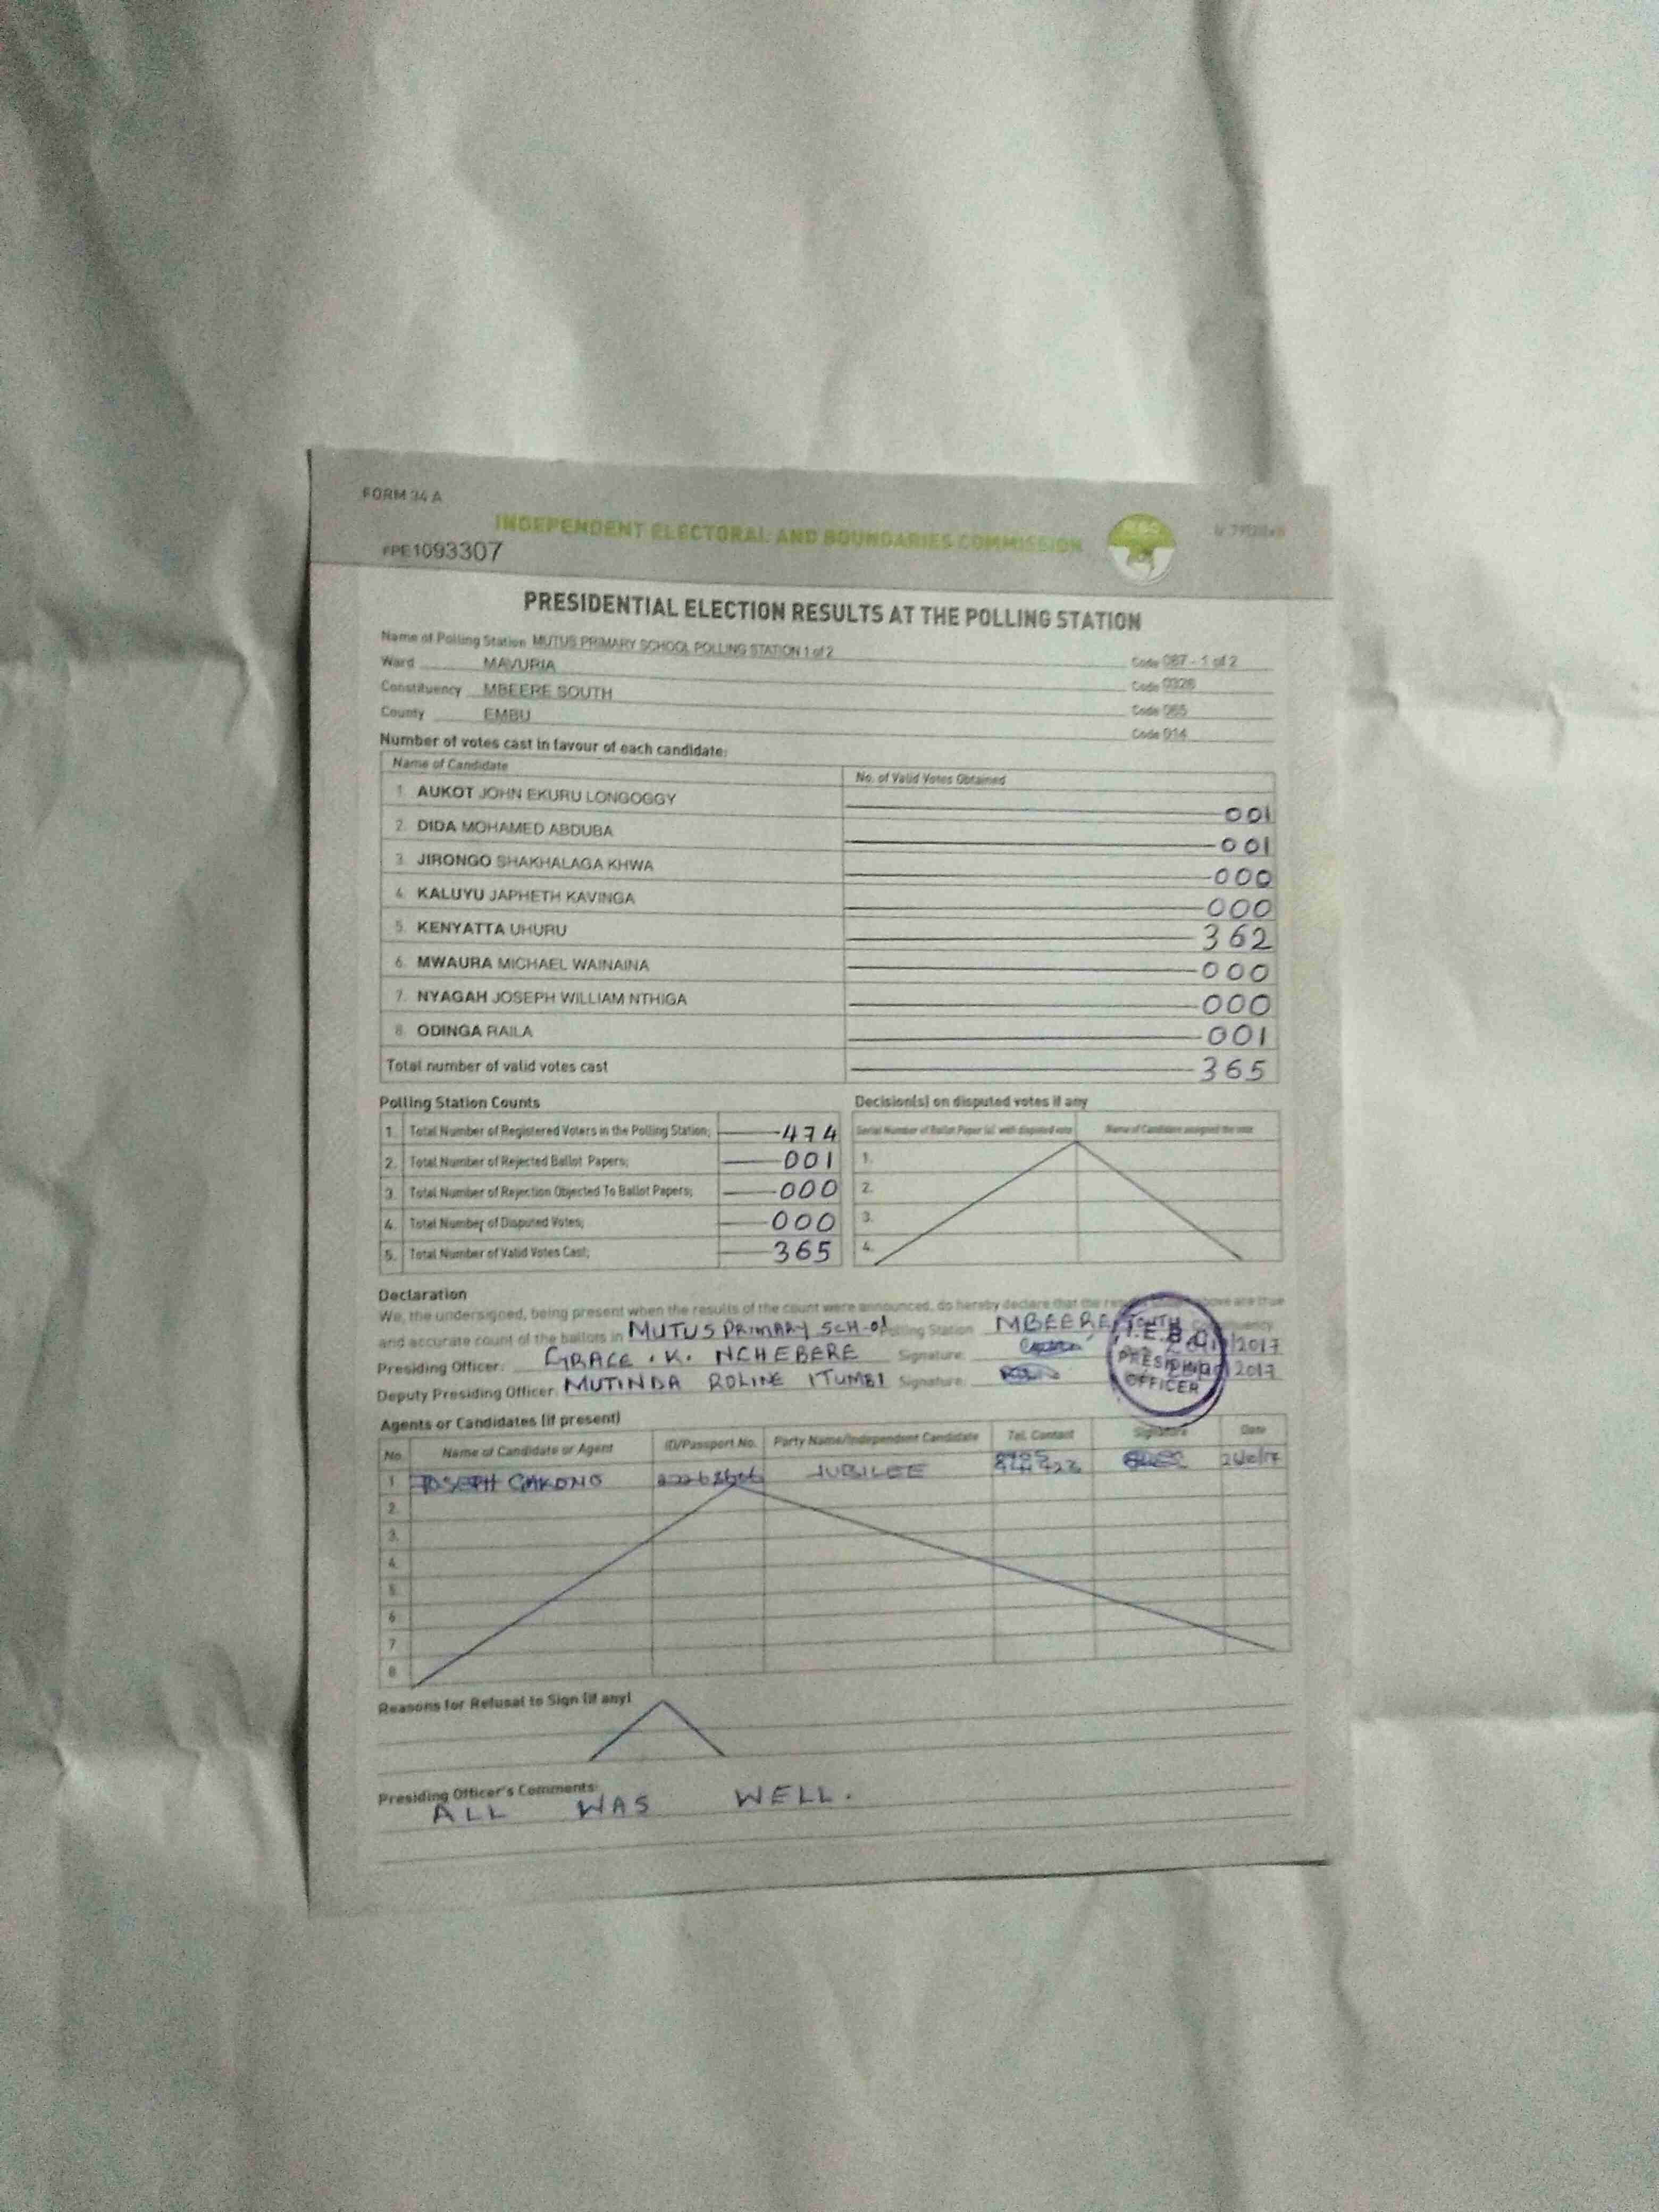 FORM 34 A
INDEPENDENT ELECTORAL AND BOUNDARIES COMMISSION
PE1093307
PRESIDENTIAL ELECTION RESULTS AT THE POLLING STATION
Name of Polling Station MUTUS PRIMARY SCHOOL POLLING STATION 1 of 2 Code 087 - 1 of 2
Ward MAVURIA Code 0326
Constituency MBEERE SOUTH Code 065
County EMBU Code 014
Number of votes cast in favour of each candidate:
Name of Candidate No. of Valid Votes Obtained
1. AUKOT JOHN EKURU LONGOGGY 001
2. DIDA MOHAMED ABDUBA 001
3. JIRONGO SHAKHALAGA KHWA 000
4. KALUYU JAPHETH KAVINGA 000
5. KENYATTA UHURU 362
6. MWAURA MICHAEL WAINAINA 000
7. NYAGAH JOSEPH WILLIAM NTHIGA 000
8. ODINGA RAILA 001
Total number of valid votes cast 365
Polling Station Counts
1. Total Number of Registered Voters in the Polling Station; 474
2. Total Number of Rejected Ballot Papers; 001
3. Total Number of Rejection Objected To Ballot Papers; 000
4. Total Number of Disputed Votes; 000
5. Total Number of Valid Votes Cast; 365
Decision(s) on disputed votes if any
Serial Number of Ballot Paper (s) with disputed vote Name of Candidate assigned the vote
1.
2.
3.
4.
Declaration
We, the undersigned, being present when the results of the count were announced, do hereby declare that the above are true
and accurate count of the ballots in MUTUS PRIMARY SCHOOL Polling Station MBEERE SOUTH Constituency
Presiding Officer: GRACE . K. NCHEBERE Signature: 2017
Deputy Presiding Officer: MUTINDA ROLINE ITUMBI Signature: 2017
PRESIDING
OFFICER
Agents or Candidates (if present)
No. Name of Candidate or Agent ID/Passport No. Party Name/Independent Candidate Tel. Contact Signature Date
1 JOSEPH GAKONO JUBILEE
2.
3.
4.
5.
6
7
8
Reasons for Refusal to Sign (if any)
Presiding Officer's Comments:
ALL WAS WELL.